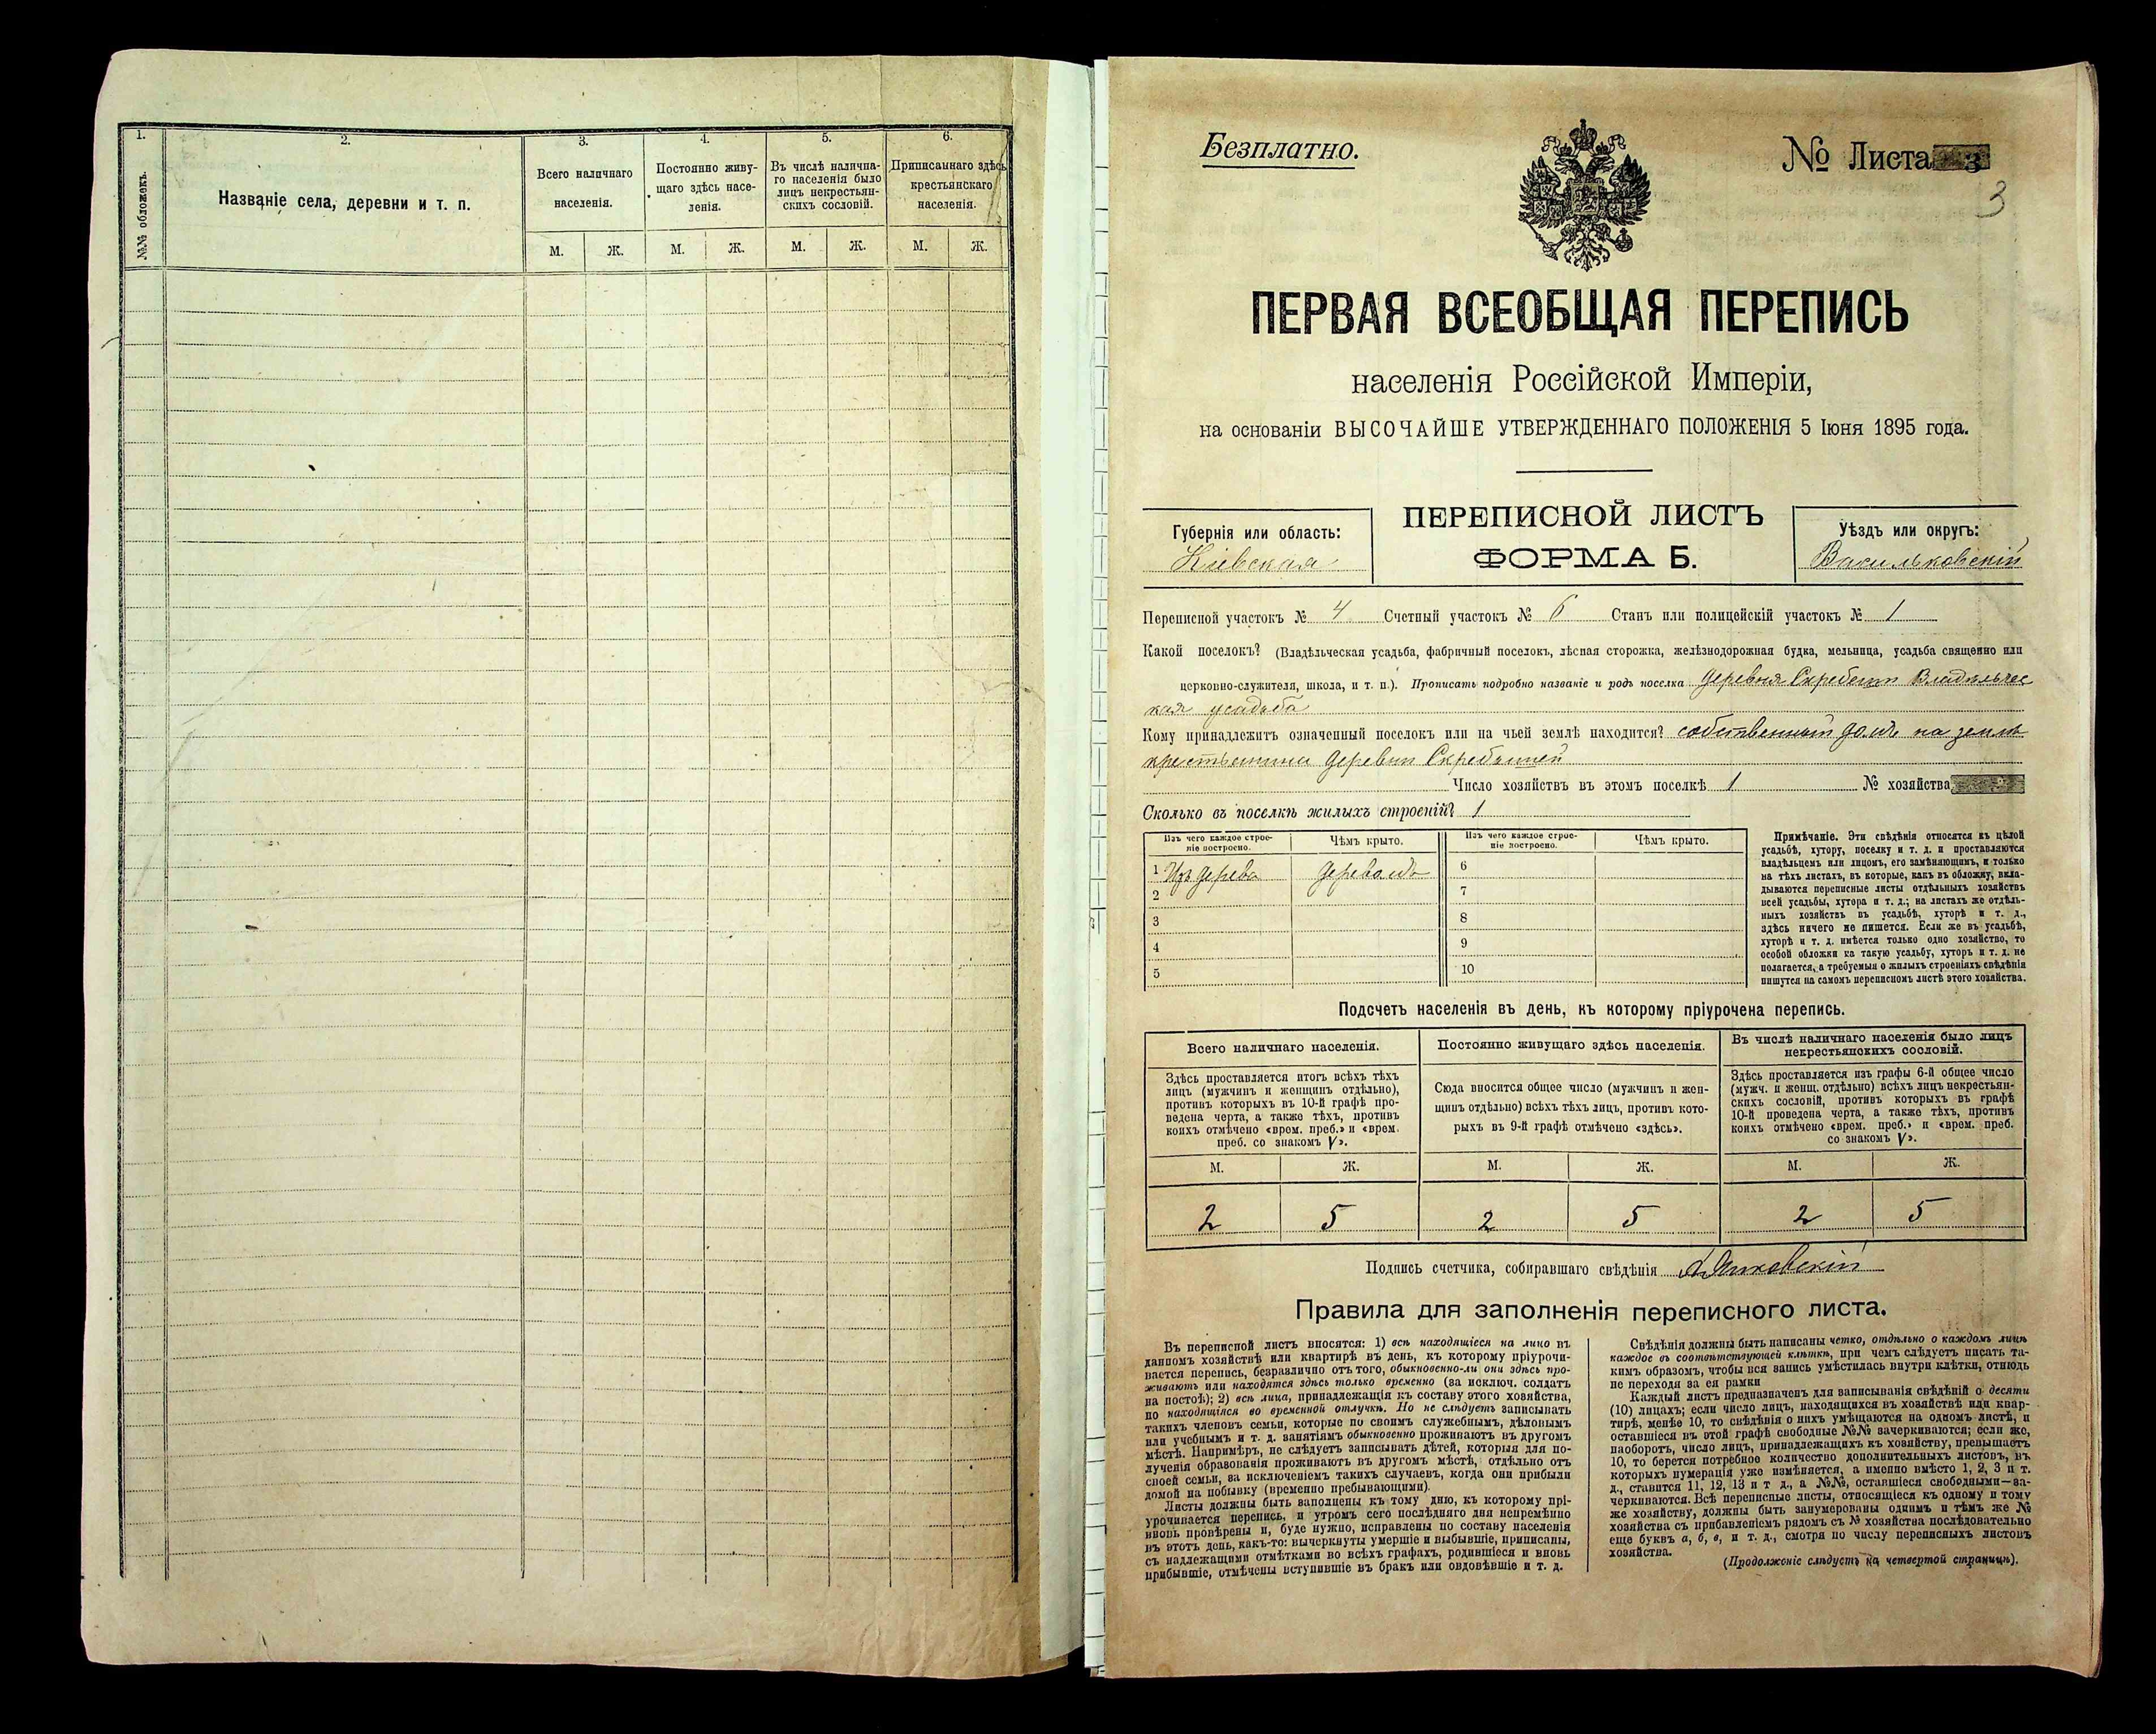 1.
2.
3.
4.
5.
6.
№№ обложекъ.
Названіе села, деревни и т. п.
Всего наличнаго
населенія.
Постоянно живу-
щаго здѣсь насе-
ленія.
Въ числѣ налична-
го населенія было
лицъ некрестьян-
скихъ сословій.
Приписаннаго здѣсь
крестьянскаго
населенія.
М. Ж. М. Ж. М. Ж. М. Ж.
Безплатно.
№ Листа 3
3
ПЕРВАЯ ВСЕОБЩАЯ ПЕРЕПИСЬ
населенія Россійской Имперіи,
на основаніи ВЫСОЧАЙШЕ УТВЕРЖДЕННАГО ПОЛОЖЕНІЯ 5 Іюня 1895 года.
Губернія или область:
Кіевская
ПЕРЕПИСНОЙ ЛИСТЪ
ФОРМА Б.
Уѣздъ или округъ:
Васильковскій
Переписной участокъ № 4 Счетный участокъ № 6 Станъ или полицейскій участокъ № 1
Какой поселокъ? (Владѣльческая усадьба, фабричный поселокъ, лѣсная сторожка, желѣзнодорожная будка, мельница, усадьба священно или
церковно-служителя, школа, и т. п.). Прописать подробно названіе и родъ поселка деревня Скребыши Владѣльчес
кая усадьба
Кому принадлежитъ означенный поселокъ или на чьей землѣ находится? собственный домъ на землѣ
крестьянина деревни Скребышей
Число хозяйствъ въ этомъ поселкѣ 1 № хозяйства
Сколько въ поселкѣ жилыхъ строеній? 1
Изъ чего каждое строе-
ніе построено.
Чѣмъ крыто.
Изъ чего каждое строе-
ніе построено.
Чѣмъ крыто.
1 Изъ дерева деревомъ 6
2 7
3 8
4 9
5 10
Примѣчаніе. Эти свѣдѣнія относятся къ цѣлой
усадьбѣ, хутору, поселку и т. д. и проставляются
владѣльцемъ или лицомъ, его замѣняющимъ, и только
на тѣхъ листахъ, въ которые, какъ въ обложку, вкла-
дываются переписные листы отдѣльныхъ хозяйствъ
всей усадьбы, хутора и т. д.; на листахъ же отдѣль-
ныхъ хозяйствъ въ усадьбѣ, хуторѣ и т. д.,
здѣсь ничего не пишется. Если же въ усадьбѣ,
хуторѣ и т. д. имѣется только одно хозяйство, то
особой обложки на такую усадьбу, хуторъ и т. д. не
полагается, а требуемыя о жилыхъ строеніяхъ свѣдѣнія
пишутся на самомъ переписномъ листѣ этого хозяйства.
Подсчетъ населенія въ день, къ которому пріурочена перепись.
Всего наличнаго населенія.
Постоянно живущаго здѣсь населенія.
Въ числѣ наличнаго населенія было лицъ
некрестьянскихъ сословій.
Здѣсь проставляется итогъ всѣхъ тѣхъ
лицъ (мужчинъ и женщинъ отдѣльно),
противъ которыхъ въ 10-й графѣ про-
ведена черта, а также тѣхъ, противъ
коихъ отмѣчено «врем. преб.» и «врем.
преб. со знакомъ V».
Сюда вносится общее число (мужчинъ и жен-
щинъ отдѣльно) всѣхъ тѣхъ лицъ, противъ кото-
рыхъ въ 9-й графѣ отмѣчено «здѣсь».
Здѣсь проставляется изъ графы 6-й общее число
(мужч. и женщ. отдѣльно) всѣхъ лицъ некрестьян-
скихъ сословій, противъ которыхъ въ графѣ
10-й проведена черта, а также тѣхъ, противъ
коихъ отмѣчено «врем. преб.» и «врем. преб.
со знакомъ V».
М. Ж. М. Ж. М. Ж.
2 5 2 5 2 5
Подпись счетчика, собиравшаго свѣдѣнія
Правила для заполненія переписного листа.
Въ переписной листъ вносятся: 1) всѣ находящіеся на лицо въ
данномъ хозяйствѣ или квартирѣ въ день, къ которому пріурочи-
вается перепись, безразлично отъ того, обыкновенно-ли они здѣсь про-
живаютъ или находятся здѣсь только временно (за исключ. солдатъ
на постоѣ); 2) всѣ лица, принадлежащія къ составу этого хозяйства,
но находящіяся во временной отлучкѣ. Но не слѣдуетъ записывать
такихъ членовъ семьи, которые по своимъ служебнымъ, дѣловымъ
или учебнымъ и т. д. занятіямъ обыкновенно проживаютъ въ другомъ
мѣстѣ. Напримѣръ, не слѣдуетъ записывать дѣтей, которыя для по-
лученія образованія проживаютъ въ другомъ мѣстѣ, отдѣльно отъ
своей семьи, за исключеніемъ такихъ случаевъ, когда они прибыли
домой на побывку (временно пребывающими).
Листы должны быть заполнены къ тому дню, къ которому прі-
урочивается перепись, и утромъ сего послѣдняго дня непремѣнно
вновь провѣрены и, буде нужно, исправлены по составу населенія
въ этотъ день, какъ-то: вычеркнуты умершіе и выбывшіе, приписаны,
съ надлежащими отмѣтками во всѣхъ графахъ, родившіеся и вновь
прибывшіе, отмѣчены вступившіе въ бракъ или овдовѣвшіе и т. д.
Свѣдѣнія должны быть написаны четко, отдѣльно о каждомъ лицѣ
каждое въ соотвѣтствующей клѣткѣ, при чемъ слѣдуетъ писать та-
кимъ образомъ, чтобы вся запись умѣстилась внутри клѣтки, отнюдь
не переходя за ея рамки
Каждый листъ предназначенъ для записыванія свѣдѣній о десяти
(10) лицахъ; если число лицъ, находящихся въ хозяйствѣ или квар-
тирѣ, менѣе 10, то свѣдѣнія о нихъ умѣщаются на одномъ листѣ, и
оставшіеся въ этой графѣ свободные №№ зачеркиваются; если же,
наоборотъ, число лицъ, принадлежащихъ къ хозяйству, превышаетъ
10, то берется потребное количество дополнительныхъ листовъ, въ
которыхъ нумерація уже измѣняется, а именно вмѣсто 1, 2, 3 и т.
д., ставится 11, 12, 13 и т д., а №№, оставшіеся свободными—за-
черкиваются. Всѣ переписные листы, относящіеся къ одному и тому
же хозяйству, должны быть занумерованы однимъ и тѣмъ же №
хозяйства съ прибавленіемъ рядомъ съ № хозяйства послѣдовательно
еще буквъ а, б, в, и т. д., смотря по числу переписныхъ листовъ
хозяйства.
(Продолженіе слѣдуетъ на четвертой страницѣ).